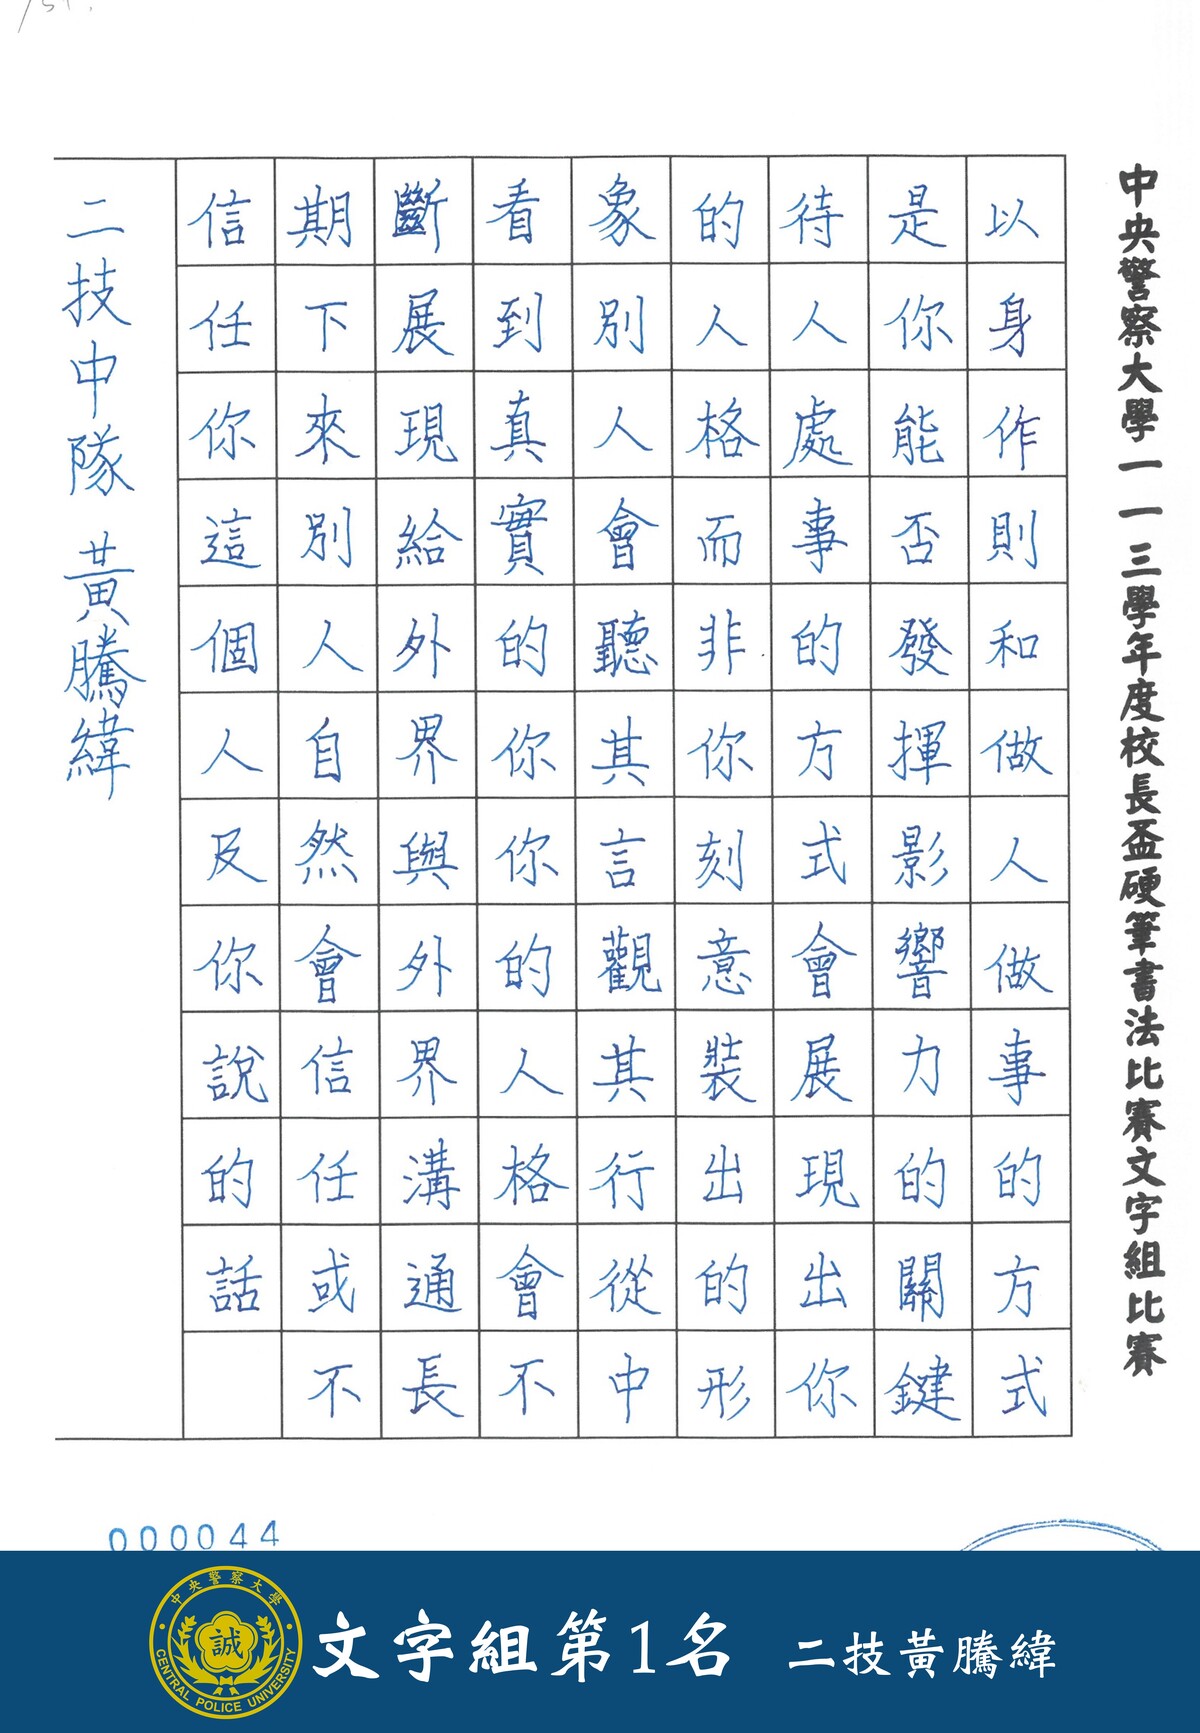 中央警察大學一一三學年度校長盃硬筆書法比賽文字組比賽
以身作則和做人做事的方式
是你能否發揮影響力的關鍵
待人處事的方式會展現出你
的人格而非你刻意裝出的形
象別人會聽其言觀其行從中
看到真實的你你的人格會不
斷展現給外界與外界溝通長
期下來別人自然會信任或不
信任你這個人及你說的話
二技中隊 黃騰緯
000044
中央警察大學
誠
CENTRAL POLICE UNIVERSITY
文字組第1名 二技黃騰緯